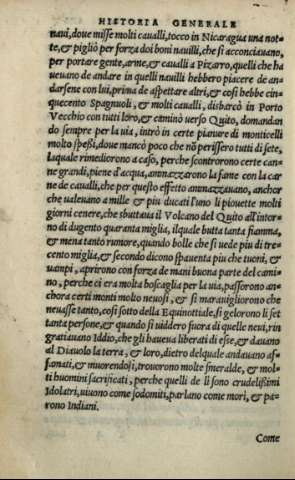 HISTORIA GENERALE
naui, doue misse molti caualli, tocco in Nicaragua una not-
te, & pigliò per forza doi boni nauilli, che si acconciauano,
per portare gente, arme, & caualli a Pizarro, quelli che ha
ueuano de andare in quelli nauilli hebbero piacere de an-
darsene con lui, prima de aspettare altri, & cosi hebbe cin-
quecento Spagnuoli, & molti caualli, disbarcò in Porto
Vecchio con tutti loro, & caminò uerso Quito, domandan
do sempre per la uia, intrò in certe pianure di monticelli
molto spessi, doue mancò poco che nõ perissero tutti di sete,
laquale rimediorono a caso, perche scontrorono certe can-
ne grandi, piene d'acqua, ammazzarono la fame con la car
ne de caualli, che per questo effetto ammazzauano, anchor
che ualeuano a mille & piu ducati l'uno li piouette molti
giorni cenere, che sbuttaua il Volcano del Quito all'intor-
no di dugento quaranta miglia, ilquale butta tanta fiamma,
& mena tanto rumore, quando bolle che si uede piu di tre-
cento miglia, & secondo dicono spauenta piu che tuoni, &
uampi, aprirono con forza de mani buona parte del cami-
no, perche ci era molta boscaglia per la uia, passorono an-
chora certi monti molto neuosi, & si marauigliorono che
neuasse tanto, cosi sotto della Equinottiale, si gelorono li set
tanta persone, & quando si uiddero fuora di quelle neui, rin
gratiauano Iddio, che gli haueua liberati di esse, & dauano
al Diauolo la terra, & loro, dietro delquale andauano af-
fanati, & muorendosi, trouorono molte smeralde, & mol-
ti huomini sacrificati, perche quelli de li sono crudelissimi
Idolatri, uiuono come sodomiti, parlano come mori, & pa-
rono Indiani.
Come